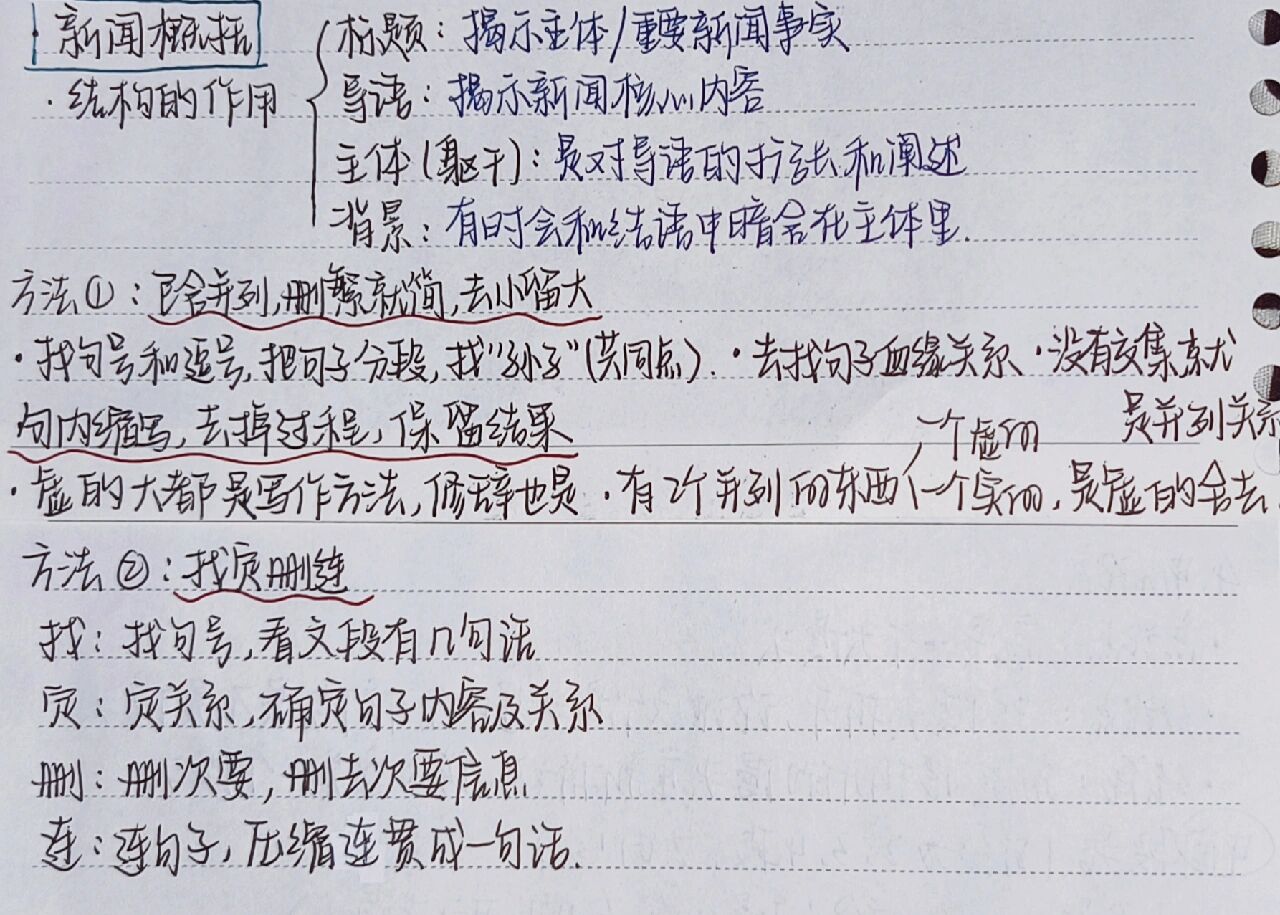 ·新闻概括
·结构的作用
标题：揭示主体/重要新闻事实
导语：揭示新闻核心内容
主体(躯干)：是对导语的扩张和阐述
背景：有时会和结语中暗含在主体里.
方法①：包含并列,删繁就简,去小留大
·找句号和逗号,把句子分段,找"孙子"(共同点).·去找句子血缘关系·没有交集就
是并列关系
句内缩写,去掉过程,保留结果
·虚的大都是写作方法,修辞也是·有2个并列的东西 一个虚的
一个实的,是虚的舍去
方法②：找定删连
找：找句号,看文段有几句话
定：定关系,确定句子内容及关系
删：删次要,删去次要信息
连：连句子,压缩连贯成一句话.